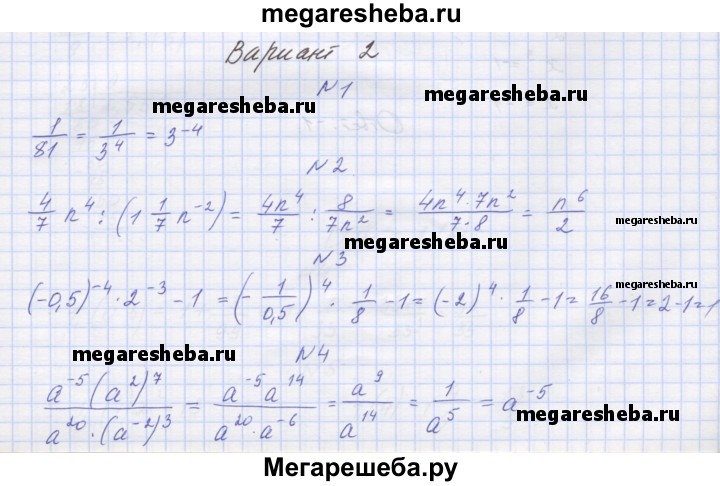 megaresheba.ru
Вариант 2
N1
megaresheba.ru megaresheba.ru
1/81 = 1/3⁴ = 3⁻⁴
N2
4/7 n⁴ : (1 1/7 n⁻²) = 4n⁴/7 : 8/7n² = 4n⁴·7n²/7·8 = n⁶/2
megaresheba.ru
megaresheba.ru
N3
megaresheba.ru
(-0,5)⁻⁴ · 2⁻³ - 1 = (-1/0,5)⁴ · 1/8 - 1 = (-2)⁴ · 1/8 - 1 = 16/8 - 1 = 2 - 1 = 1
megaresheba.ru megaresheba.ru
N4
a⁻⁵(a²)⁷/a²⁰·(a⁻²)³ = a⁻⁵a¹⁴/a²⁰·a⁻⁶ = a⁹/a¹⁴ = 1/a⁵ = a⁻⁵
megaresheba.ru
Мегарешеба.ру